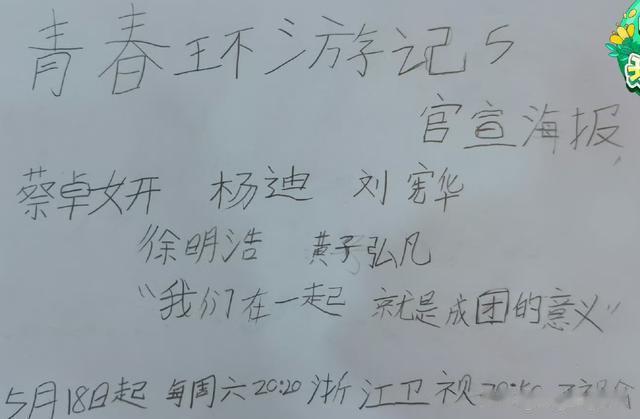 青春环游记5
官宣海报
蔡卓妍 杨迪 刘宪华
徐明浩 黄子弘凡
“我们在一起 就是成团的意义”
5月18日起 每周六20:20浙江卫视